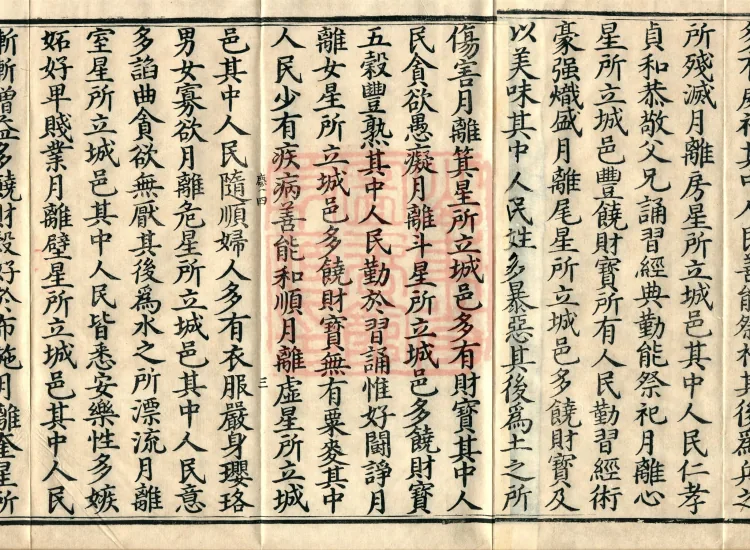 其中人民善能祭祀其後爲兵之
所殘滅月離房星所立城邑其中人民仁孝
貞和恭敬父兄誦習經典勤能祭祀月離心
星所立城邑豐饒財寶所有人民勤習經術
豪强熾盛月離尾星所立城邑多饒財寶及
以美味其中人民姓多暴惡其後爲土之所
傷害月離箕星所立城邑多有財寶其中人
民貪欲愚癡月離斗星所立城邑多饒財寶
五穀豐熟其中人民勤於習誦惟好鬪諍月
離女星所立城邑多饒財寶無有粟麥其中
人民少有疾病善能和順月離虛星所立城
一四 三
邑其中人民隨順婦人多有衣服嚴身瓔珞
男女寡欲月離危星所立城邑其中人民意
多諂曲貪欲無厭其後爲水之所漂流月離
室星所立城邑其中人民皆悉安樂性多嫉
妬好卑賤業月離壁星所立城邑其中人民
漸漸增益多饒財穀好於布施月離奎星所